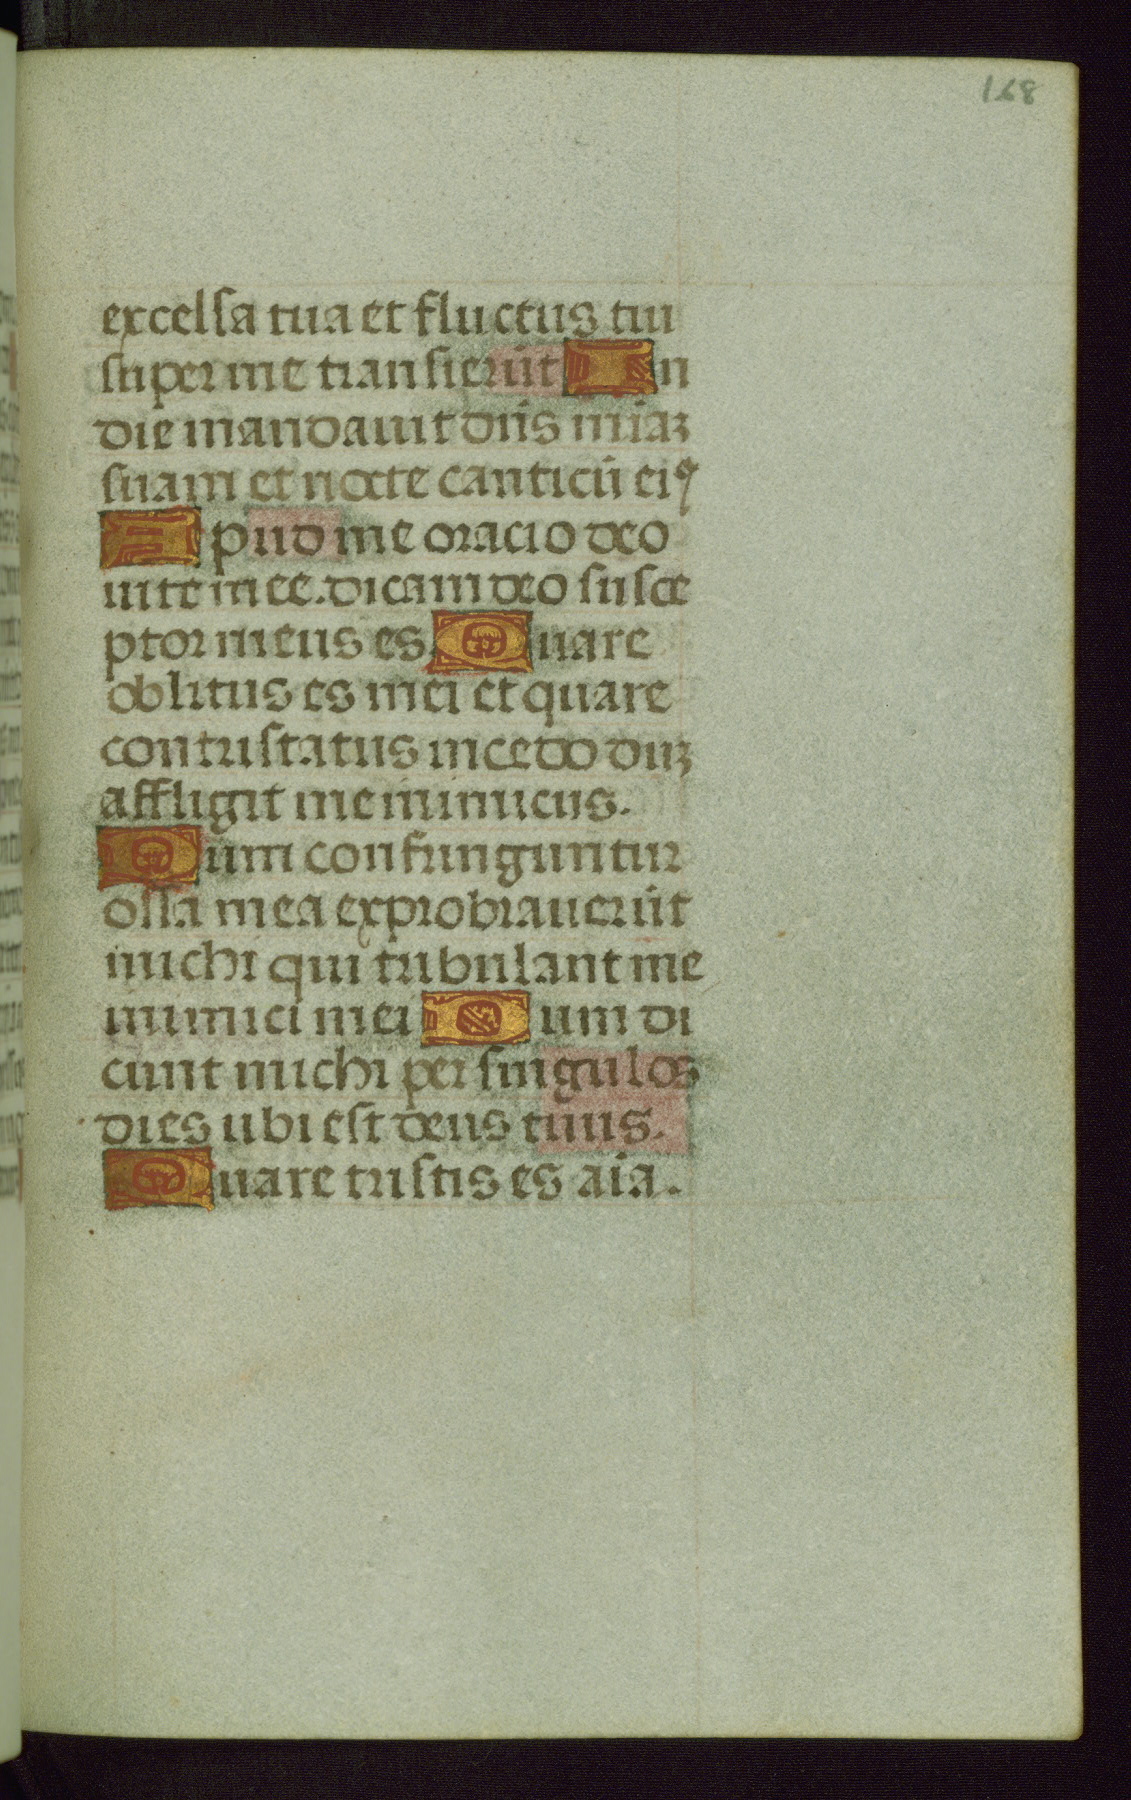 168
excelsa tua et fluctus tui
super me transierūt In
die mandauit dn̄s mīaꝫ
suam et nocte canticū eiꝰ
Apud me oracio deo
uite mee. dicam deo susce
ptor meus es Quare
oblitus es mei et quare
contristatus incedo duꝫ
affligit me inimicus.
Dum confringuntur
ossa mea exprobrauerūt
michi qui tribulant me
inimici mei Dum di
cunt michi per singulos
dies ubi est deus tuus.
Quare tristis es aīa.